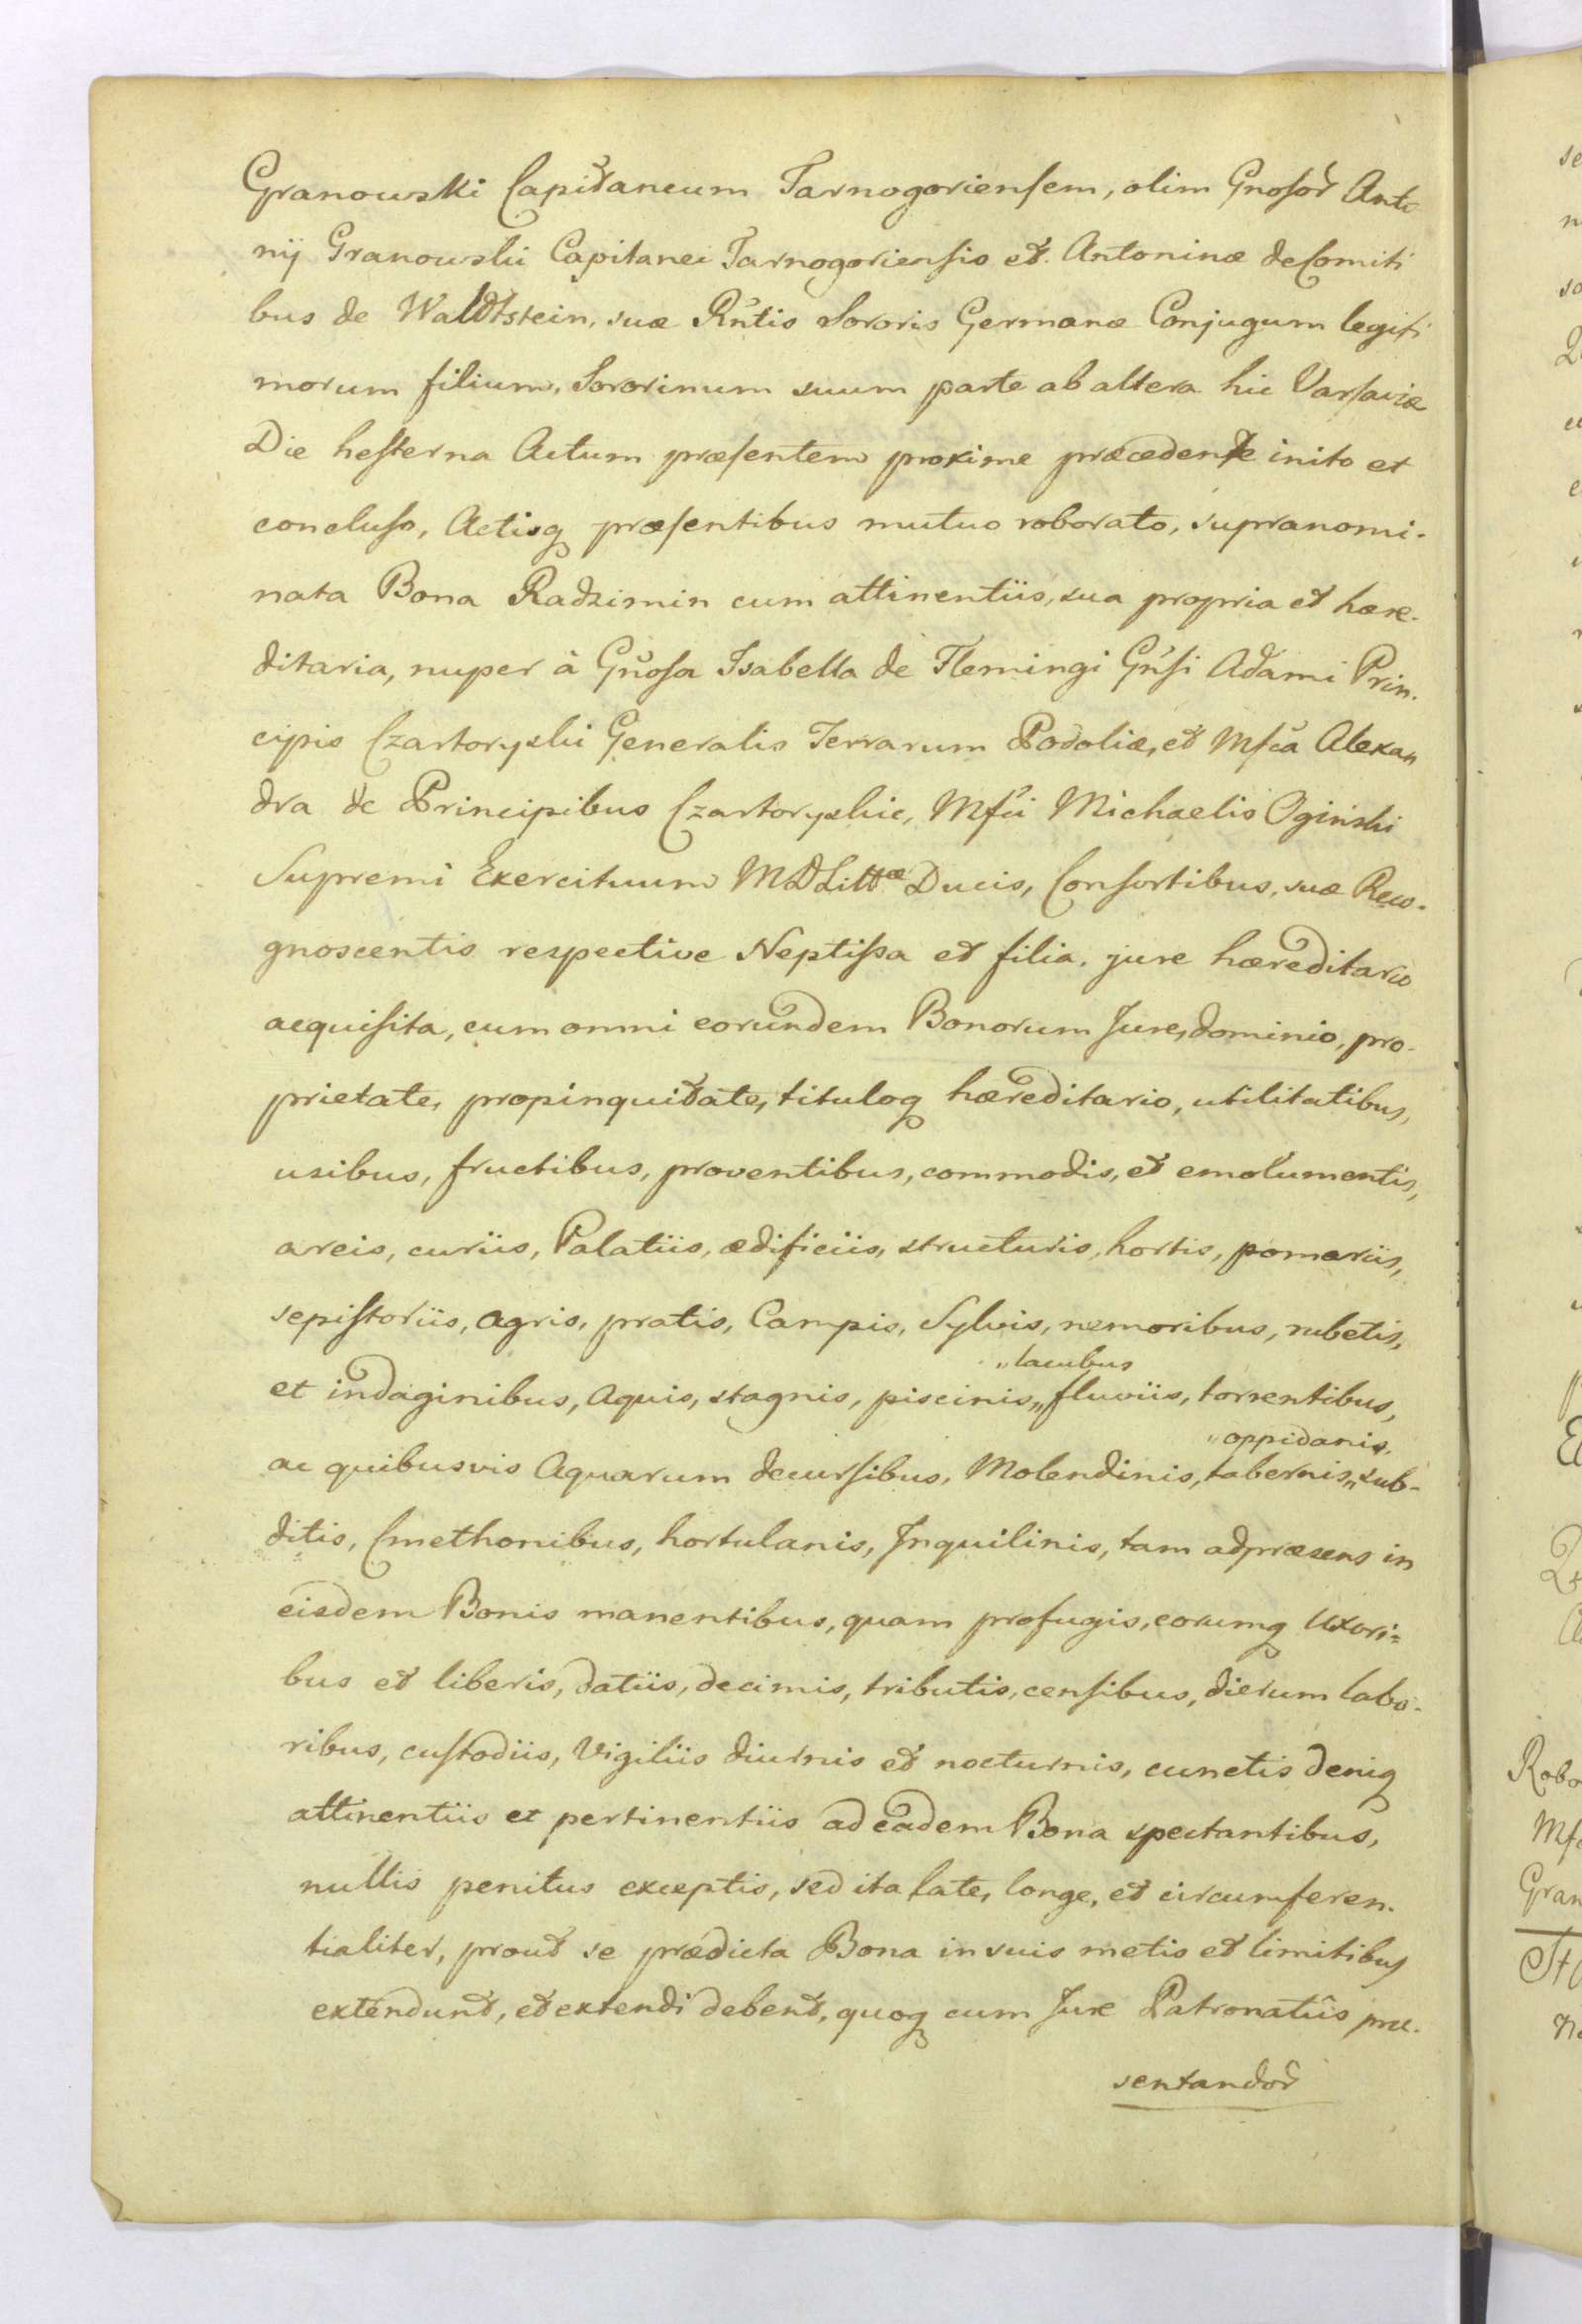 Granowski Capitaneum Tarnogoriensem, olim Gnosor̃ Anto
nij Granowski Capitanei Tarnogoriensis et Antoninæ de Comiti
bus de Waldtstein, suæ Rñtis Sororis Germanæ Conjugum legiti
morum filium, Sororinum suum parte ab altera hic Varsaviæ
Die hesterna Actum præsentem proxime præcedente inito et
concluso, Actisq præsentibus mutuo roborato, supranomi-
nata Bona Radzimin cum attinentiis, sua propria et hære-
ditaria, nuper à Gñosa Isabella de Flemingi Gñsi Adami Prin-
cipis Czartoryski Generalis Terrarum Podoliæ, et Mfca Alexan
dra de Principibus Czartoryskie, Mfci Michaelis Ogiński
Supremi Exercituum MDLittæ Ducis, Consortibus, suæ Reco-
gnoscentis respective Neptissa et filia, jure hæreditario
acquisita, cum omni eorundem Bonorum Jure, dominio, pro-
prietate, propinquitate, tituloq hæreditario, utilitatibus,
usibus, fructibus, proventibus, commodis, et emolumentis,
areis, curiis, Palatiis, ædificiis, structuris, hortis, pomariis,
sepistoriis, agris, pratis, Campis, Sylvis, nemoribus, rubetis,
„lacubus
et indaginibus, Aquis, stagnis, piscinis„ fluviis, torrentibus,
„oppidanis.
ac quibusvis Aquarum decursibus, Molendinis, tabernis„ sub-
ditis, Cmethonibus, hortulanis, Inquilinis, tam adpræsens in
eisdem Bonis manentibus, quam profugis, eorumq Uxori=
bus et liberis, datiis, decimis, tributis, censibus, dierum labo-
ribus, custodiis, Vigiliis diurnis et nocturnis, cunctis deniq
attinentiis et pertinentiis ad eadem Bona spectantibus,
nullis penitus exceptis, sed ita late, longe, et circumferen-
tialiter, prout se prædicta Bona in suis metis et limitibus
extendunt, et extendi debent, quoq cum Jure Patronatûs præ-
sentandor̃